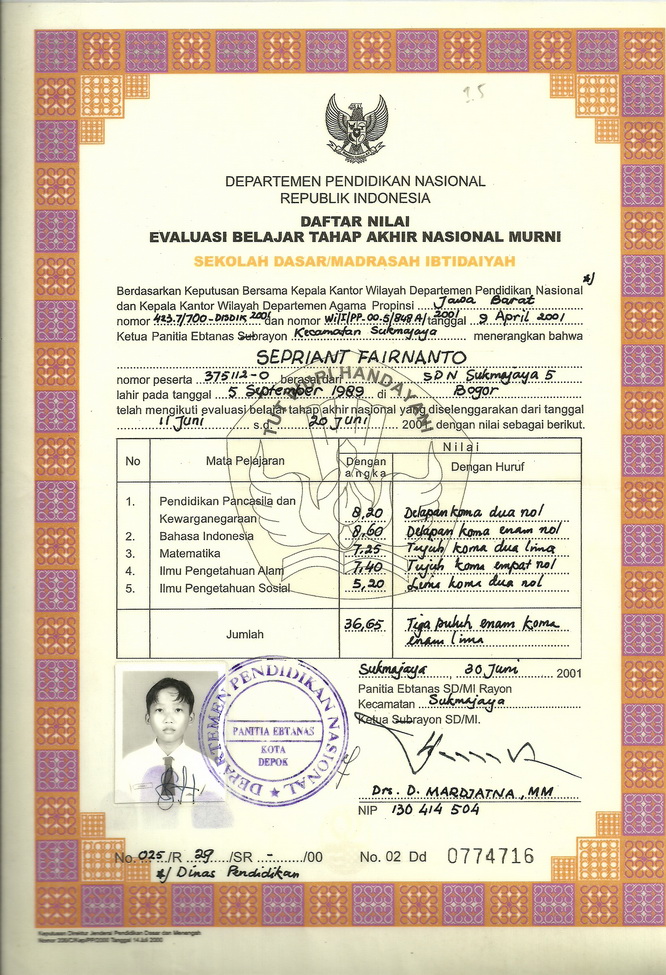 9.5
DEPARTEMEN PENDIDIKAN NASIONAL
REPUBLIK INDONESIA
DAFTAR NILAI
EVALUASI BELAJAR TAHAP AKHIR NASIONAL MURNI
SEKOLAH DASAR/MADRASAH IBTIDAIYAH
*)
Berdasarkan Keputusan Bersama Kepala Kantor Wilayah Departemen Pendidikan Nasional
dan Kepala Kantor Wilayah Departemen Agama Propinsi Jawa Barat
nomor 423.7/700-DISDIK 2001 dan nomor Wi/I/PP-00.5/848A/2001 tanggal 9 April 2001
Ketua Panitia Ebtanas Subrayon Kecamatan Sukmajaya menerangkan bahwa
SEPRIANT FAIRNANTO
nomor peserta 375112-0 berasal dari SDN Sukmajaya 5
lahir pada tanggal 5 September 1989 di Bogor
telah mengikuti evaluasi belajar tahap akhir nasional yang diselenggarakan dari tanggal
11 Juni s.d. 20 Juni 2001, dengan nilai sebagai berikut.
TUT WURI HANDAYANI
No Mata Pelajaran Nilai
Dengan angka Dengan Huruf
1. Pendidikan Pancasila dan
Kewarganegaraan 8,20 Delapan koma dua nol
2. Bahasa Indonesia 8,60 Delapan koma enam nol
3. Matematika 7,25 Tujuh koma dua lima
4. Ilmu Pengetahuan Alam 7,40 Tujuh koma empat nol
5. Ilmu Pengetahuan Sosial 5,20 Lima koma dua nol
Jumlah 36,65 Tiga puluh enam koma
enam lima
Sukmajaya, 30 Juni 2001
Panitia Ebtanas SD/MI Rayon
Kecamatan Sukmajaya
Ketua Subrayon SD/MI.
DEPARTEMEN PENDIDIKAN NASIONAL
PANITIA EBTANAS
KOTA
DEPOK
Drs. D. MARDJATNA, MM
NIP 130 414 504
No. 025 /R 29 /SR - /00 No. 02 Dd 0774716
*) Dinas Pendidikan
Keputusan Direktur Jenderal Pendidikan Dasar dan Menengah
Nomor 206/C/Kep/PP/2000 Tanggal 14 Juli 2000